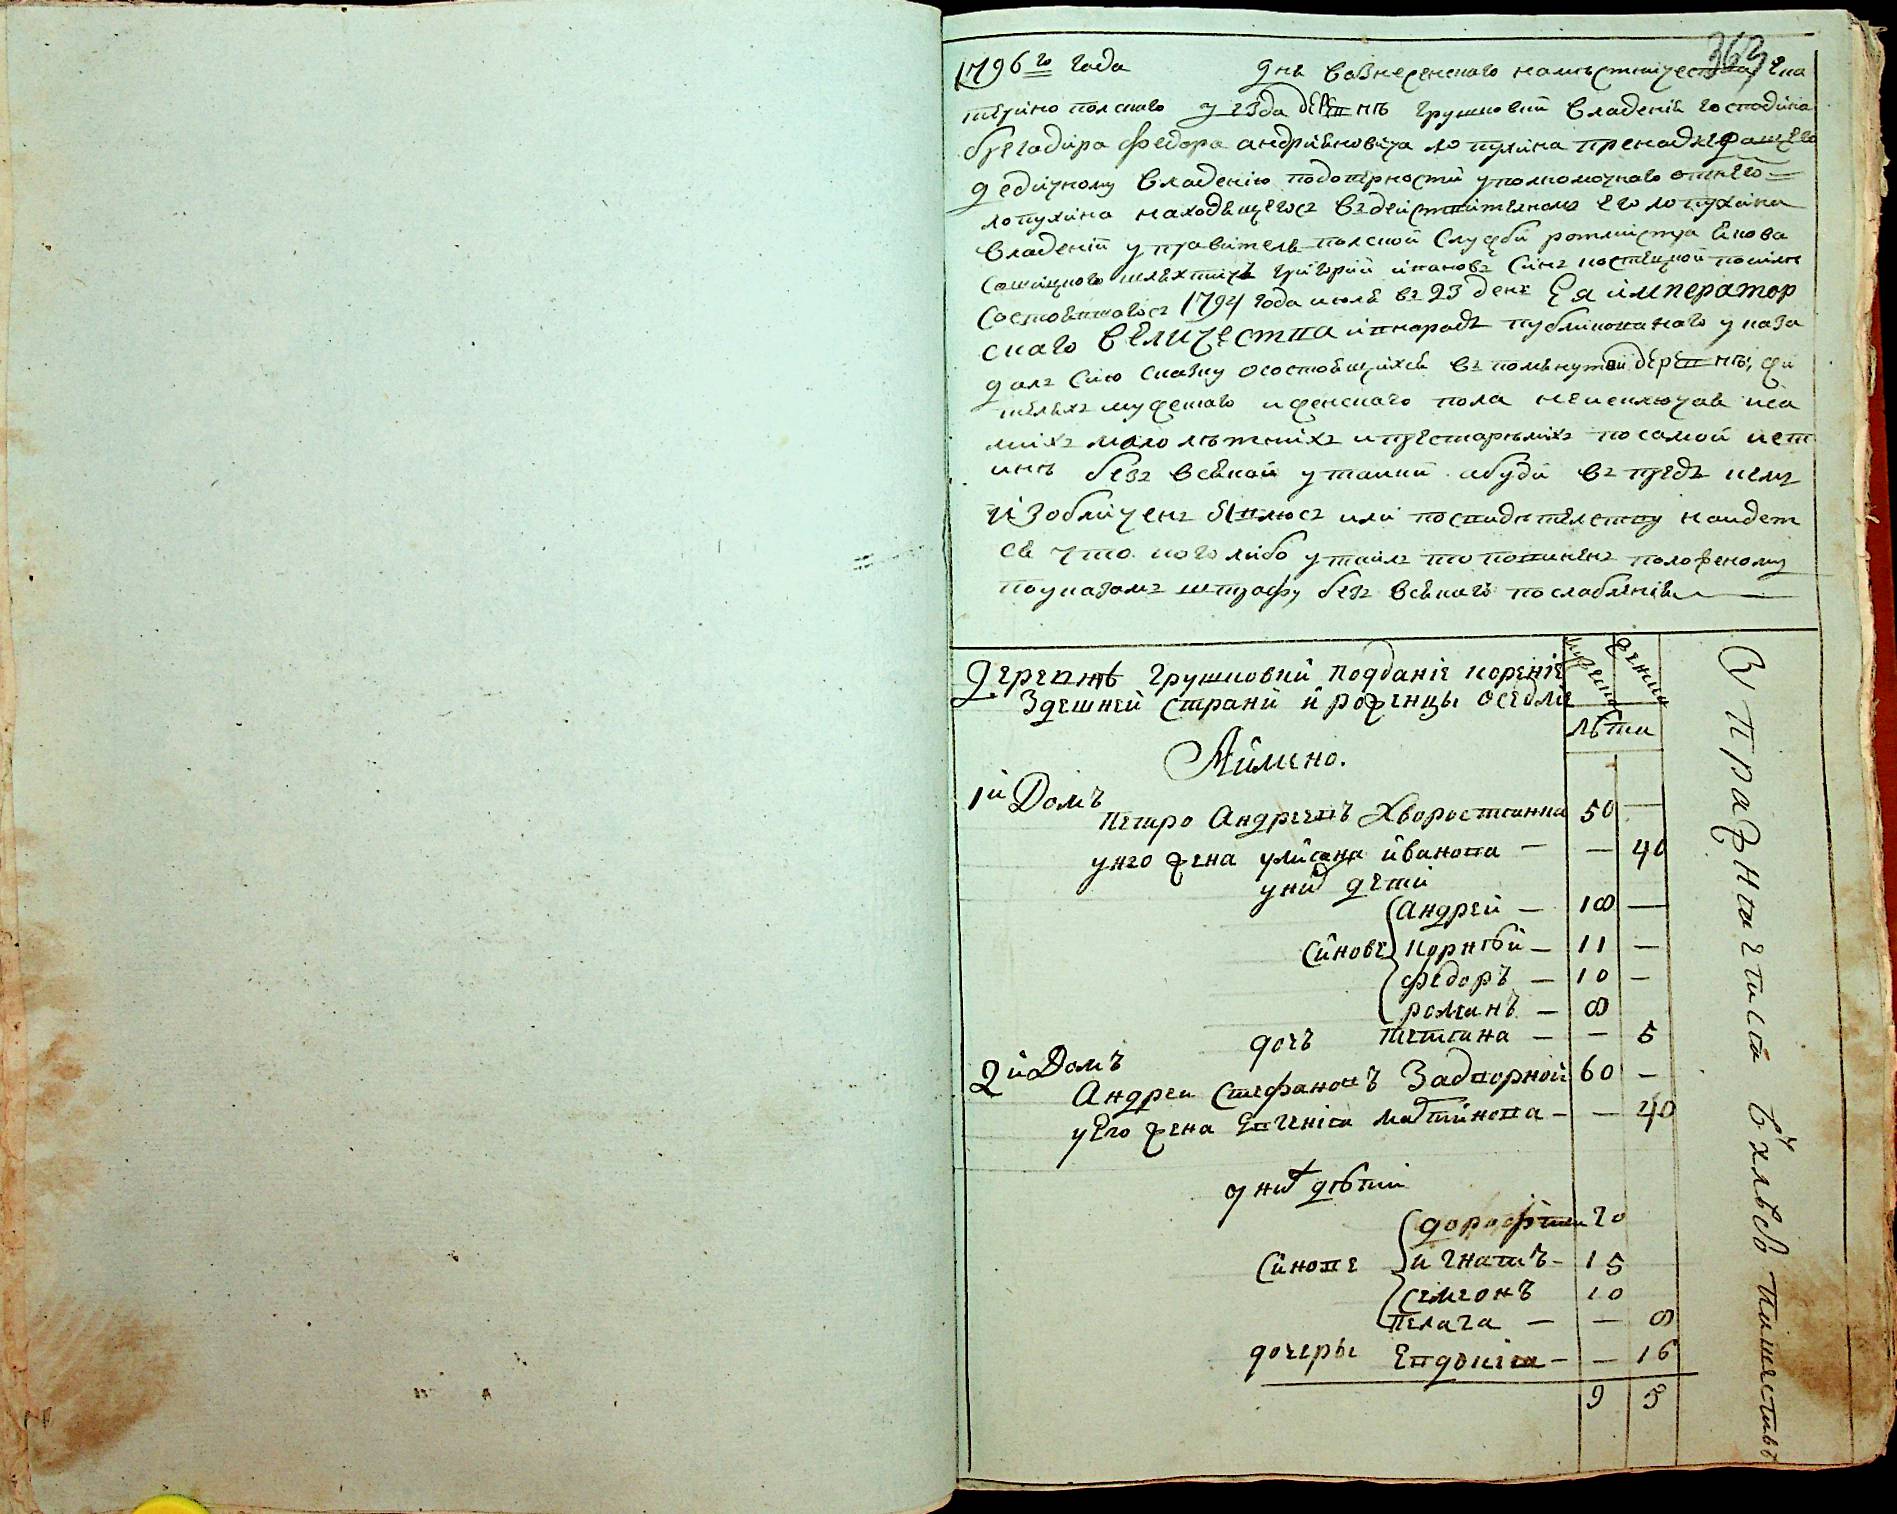 363
1796го года дня вознесенского наместничества, Ека
терінополского уезда деревнѣ Грушковки владенія господина
брегадира Федора андріановича лопухина пренадлежащего
дедичному владенію подоверности уполномочнаго отнего
лопухина находящегося въдействителномъ его лопухина
владеніи управитель полской службы ротмистра Якова
шляхтичъ григорий ивановъ синъ
состоявшагось 1794 года июля въ 23 день Ея император
скаго Величества инародъ публикованаго указа
далъ сию сказку осостоящихся въ помянутой деревнѣ, жи
телехъ мужескаго иженскаго пола неисключая иса
михъ малолѣтнихъ ипрестарелихъ посамой ист
инѣ безъ всякой утайки абуди въпредь кемъ
изобличенъ явлюсь или посвидителству найдет
ся что кого либо утаилъ то повиненъ положеному
поуказомъ штрафу безъ всякаго послабленія
Деревнѣ Грушковки Подданіе кореніе
Здешней страни и роженцы оседліе
мужеска женска
лѣта
Аймено.
1й Домъ
Петро Андреевъ Хворостянка 50 —
унго жена улияна иванова — — 40
уних дети
Синове Андрей — 18 —
Корнѣй — 11 —
Федоръ — 10 —
романъ — 8
дочь тетиана — — 5
2й Домъ
Андреи Стефановъ Задворной 60 —
уего жена Евгения матвинова — — 40
у них дѣти
Синове дорофтеи 20
игнатъ — 15
семионъ 10
пелага — — 8
дочеры Евдокия — — 16
9 5